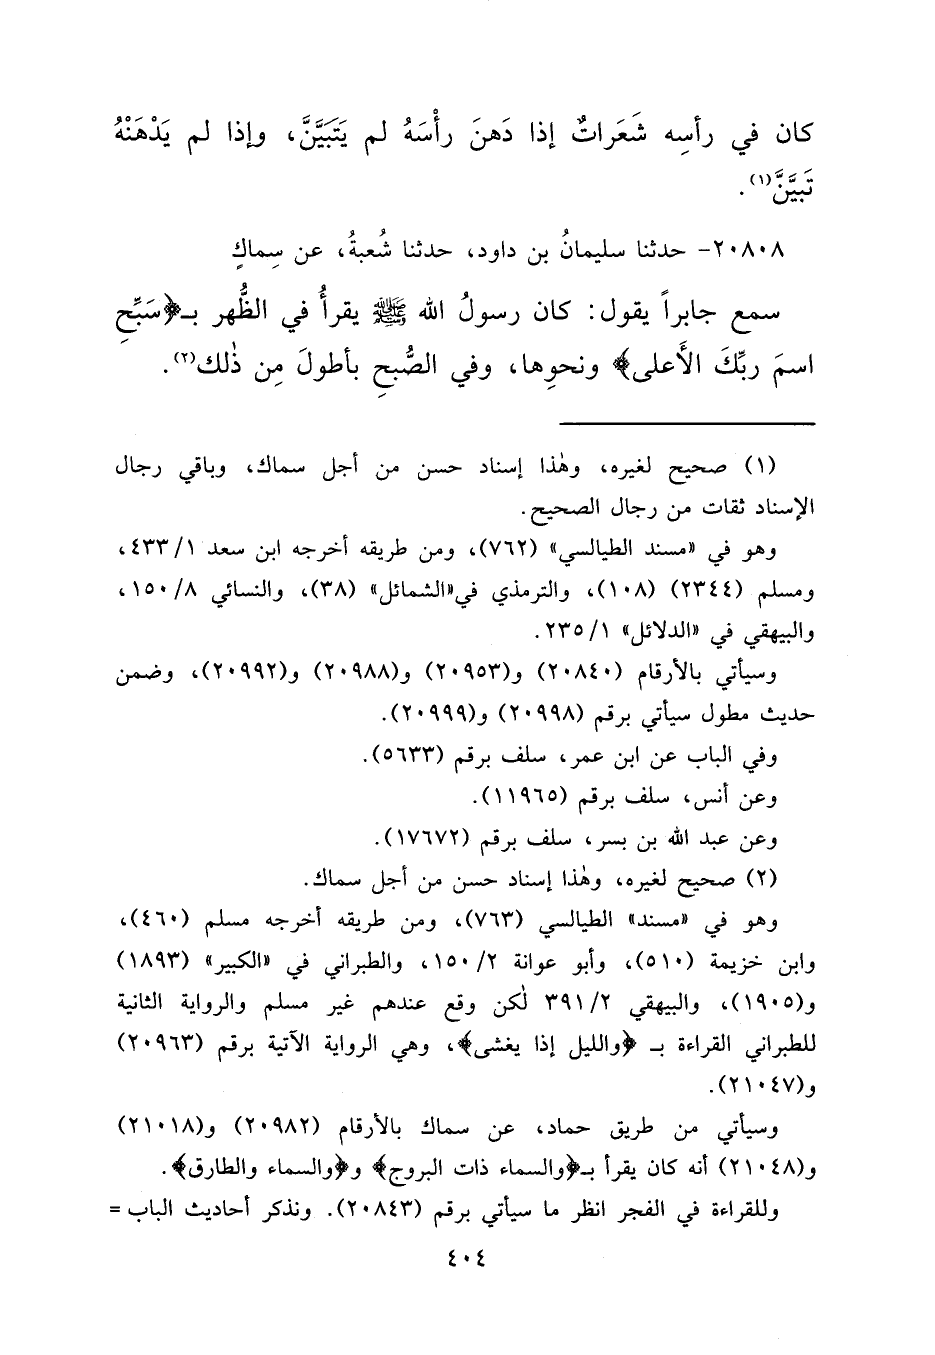 كان في رأسِه شَعَراتٌ إذا دَهنَ رأْسَهُ لم يَتَبَيَّنَّ، وإذا لم يَدْهَنْهُ
تَبيَّنَّ(١).
٢٠٨٠٨- حدثنا سليمانُ بن داود، حدثنا شُعبةُ، عن سِماكٍ
سمع جابراً يقول: كان رسولُ الله ﷺ يقرأُ في الظُّهر بـ﴿سَبِّحِ
اسمَ ربِّكَ الأَعلى﴾ ونحوِها، وفي الصُّبحِ بأطولَ مِن ذٰلك(٢).
(١) صحيح لغيره، وهٰذا إسناد حسن من أجل سماك، وباقي رجال
الإسناد ثقات من رجال الصحيح.
وهو في «مسند الطيالسي» (٧٦٢)، ومن طريقه أخرجه ابن سعد ٤٣٣/١،
ومسلم (٢٣٤٤) (١٠٨)، والترمذي في«الشمائل» (٣٨)، والنسائي ١٥٠/٨،
والبيهقي في «الدلائل» ٢٣٥/١.
وسيأتي بالأرقام (٢٠٨٤٠) و(٢٠٩٥٣) و(٢٠٩٨٨) و(٢٠٩٩٢)، وضمن
حديث مطول سيأتي برقم (٢٠٩٩٨) و(٢٠٩٩٩).
وفي الباب عن ابن عمر، سلف برقم (٥٦٣٣).
وعن أنس، سلف برقم (١١٩٦٥).
وعن عبد الله بن بسر، سلف برقم (١٧٦٧٢).
(٢) صحيح لغيره، وهٰذا إسناد حسن من أجل سماك.
وهو في «مسند» الطيالسي (٧٦٣)، ومن طريقه أخرجه مسلم (٤٦٠)،
وابن خزيمة (٥١٠)، وأبو عوانة ١٥٠/٢، والطبراني في «الكبير» (١٨٩٣)
و(١٩٠٥)، والبيهقي ٣٩١/٢ لٰكن وقع عندهم غير مسلم والرواية الثانية
للطبراني القراءة بـ ﴿والليل إذا يغشى﴾، وهي الرواية الآتية برقم (٢٠٩٦٣)
و(٢١٠٤٧).
وسيأتي من طريق حماد، عن سماك بالأرقام (٢٠٩٨٢) و(٢١٠١٨)
و(٢١٠٤٨) أنه كان يقرأ بـ﴿والسماء ذات البروج﴾ و﴿والسماء والطارق﴾.
وللقراءة في الفجر انظر ما سيأتي برقم (٢٠٨٤٣). ونذكر أحاديث الباب =
٤٠٤